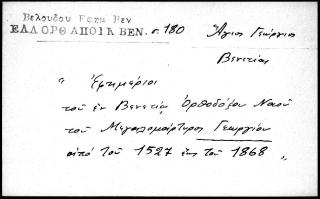 Βελουδου Εφημ Βεν
ΕΛΛ ΟΡΘ ΑΠΟΙΚ ΒΕΝ. σ. 180
Ἅγιος Γεώργιος
Βενετίας
" Ἐφημέριοι
τοῦ ἐν Βενετίᾳ Ὀρθοδόξου Ναοῦ
τοῦ Μεγαλομάρτυρος Γεωργίου
ἀπό τοῦ 1527 ἕως τοῦ 1868 "